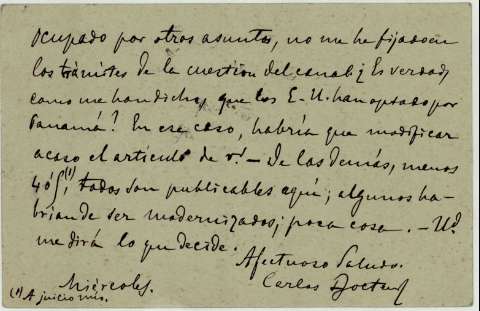 Ocupado por otros asuntos, no me he fijado en
los trámites de la cuestion del canal. ¿Es verdad,
como me han dicho, que los E-U. han optado por
Panamá? En ese caso, habría que modificar
acaso el artículo de v! — De los demás, menos
4 ó 5(1), todos son publicables aquí; algunos ha-
brian de ser modernizados; poca cosa. — Ud.
me dirá lo que decide.
Afectuoso Saludo.
Miércoles. Carlos
(1) A juicio mio.